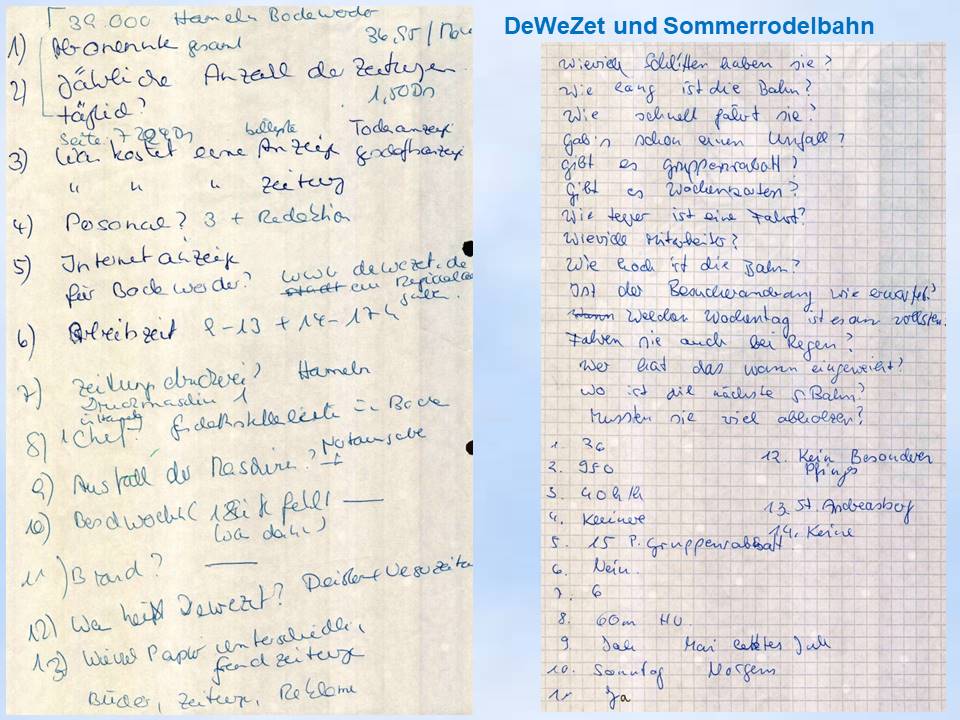 DeWeZet und Sommerrodelbahn
39.000 Hameln Bodewerder
1) Abonennte gesamt 36,95/Mon
2) Jährliche Anzahl der Zeitungen
täglich? 1,50
Seite 7 Todesanzeige
3) Was kostet eine Anzeige Geschäftsanzeige
" " " Zeitung
4) Personal? 3 + Redaktion
5) Internetanzeige
für Bodewerder? www.dewezet.de
ein
6) Arbeitszeit 9-13 + 14-17 h
7) Zeitungsdruckerei? Hameln
Druckmaschin 1
in Hameln
8) 1 Chef? in Bode
9) Ausfall der Maschine? Notausgabe
10) 1 Seite fehlt —
(war da)
11) Brand? —
12) Was heißt Dewezet? Deister + Weserzeitu
13) Wieviel Papier unterschiedlich,
Bücher, Zeitung, Reklame
Wieviele Schlitten haben sie?
Wie lang ist die Bahn?
Wie schnell fährt sie?
Gab's schon einen Unfall?
Gibt es Gruppenrabatt?
Gibt es Wochenkarten?
Wie teuer ist eine Fahrt?
Wieviele Mitarbeiter?
Wie hoch ist die Bahn?
Ist der Besucherandrang wie erwartet?
Welcher Wochentag ist es am vollsten.
Fahren sie auch bei Regen?
Wer hat das wann eingeweiht?
Wo ist die nächste S Bahn?
Mussten sie viel abholzen?
1. 36
2. 980
3. 40 h/h
4. Keiner
5. 15 P. Gruppenrabatt
6. Nein.
7. 6
8. 60m HU.
9. Mai letztes Jah
10. Sonntag Morgens
11. Ja
12. Kein Besonderer
Pfings
13. St. Andreasberg
14. Keine